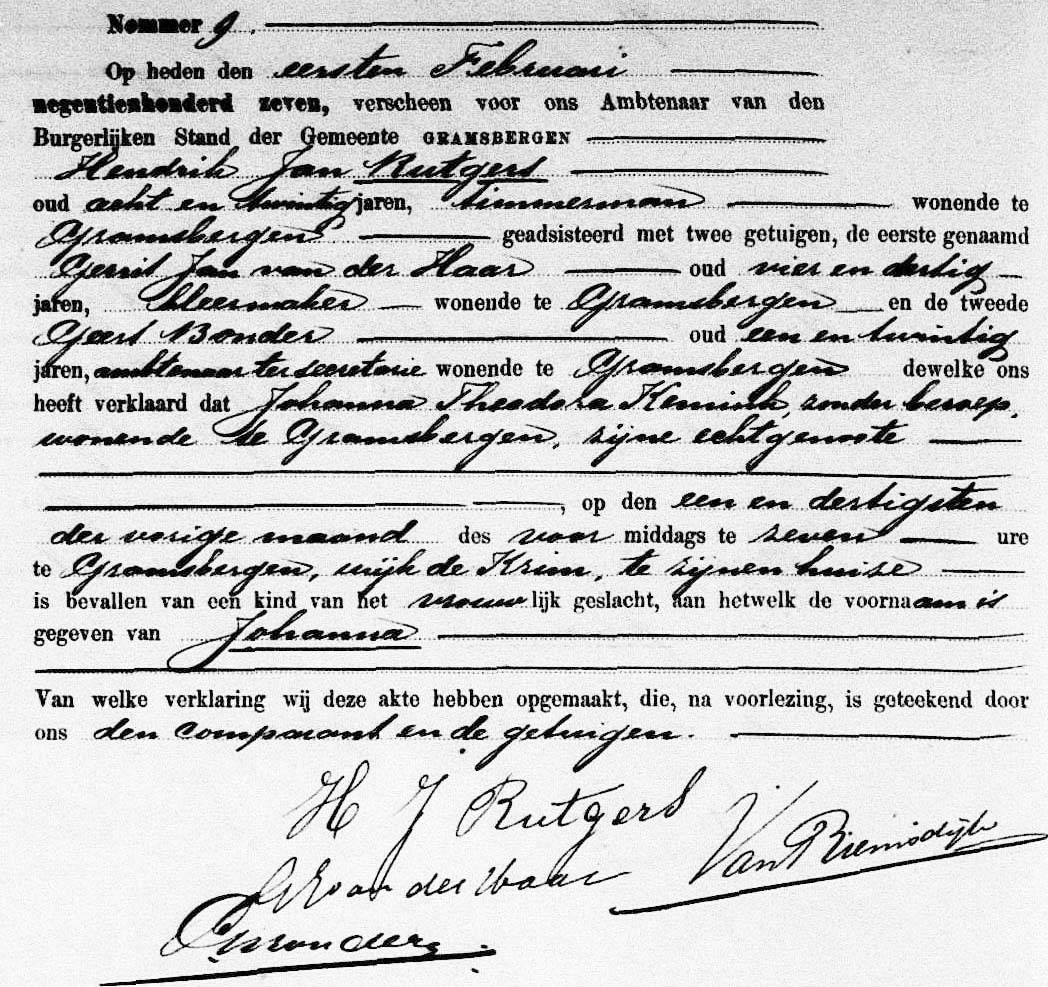 Nommer 9.
Op heden den eersten Februari
negentienhonderd zeven, verscheen voor ons Ambtenaar van den
Burgerlijken Stand der Gemeente GRAMSBERGEN
Hendrik Jan Rutgers
oud acht en twintig jaren, timmerman wonende te
Gramsbergen geadsisteerd met twee getuigen, de eerste genaamd
Gerrit Jan van der Haar oud vier en dertig
jaren, kleermaker wonende te Gramsbergen en de tweede
Geert Bonder oud een en twintig
jaren, ambtenaar ter secretarie wonende te Gramsbergen dewelke ons
heeft verklaard dat Johanna Theodora Kemink, zonder beroep,
wonende te Gramsbergen, zijne echtgenoote
, op den een en dertigsten
der vorige maand des voor middags te zeven ure
te Gramsbergen, wijk de Krim, te zijnen huize
is bevallen van een kind van het vrouwlijk geslacht, aan hetwelk de voornaam is
gegeven van Johanna
Van welke verklaring wij deze akte hebben opgemaakt, die, na voorlezing, is geteekend door
ons den comparant en de getuigen.
H J Rutgers
Van Riemsdijk
van der Haar
GBonder